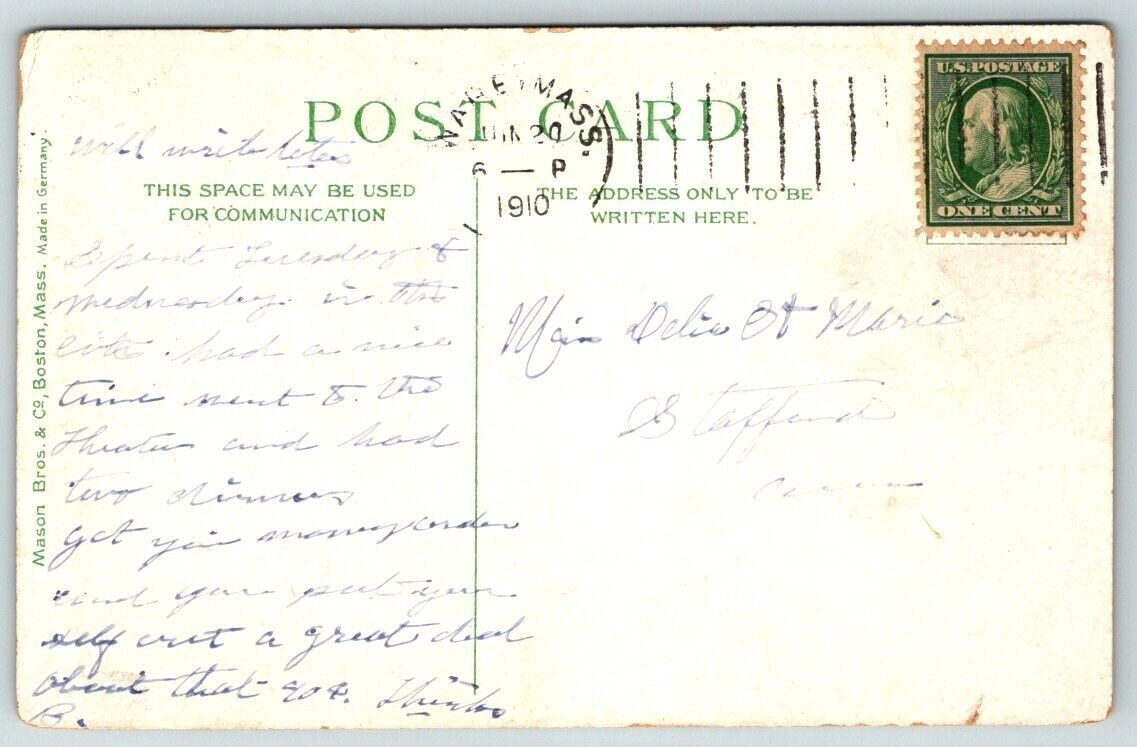 POST CARD
WARE, MASS.
JUN 20
6 — P
1910
U.S.POSTAGE
ONE CENT
will write later
THIS SPACE MAY BE USED
FOR COMMUNICATION
THE ADDRESS ONLY TO BE
WRITTEN HERE.
Spent Tuesday &
Wednesday in the
city had a nice
time went to the
Theater and had
two dinners
got your money order
and you put your
self out a great deal
about that 90¢. Thinks
B.
Miss Delia St Marie
Stafford
Conn
Mason Bros. & Co, Boston, Mass. Made in Germany.